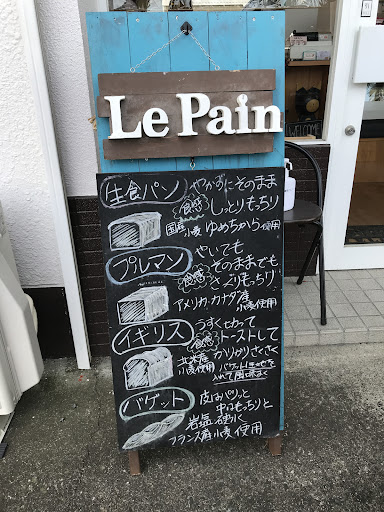 Le Pain
WELCOME
生食パン
やかずにそのまま
食感
しっとりもっちり
国産小麦 ゆめちから使用
プルマン
やいても
そのままでも
食感
さっくりもっちり
アメリカ・カナダ産
小麦使用
イギリス
うすく切って
食感
トーストして
北米産
小麦使用
かりかりさくさく
入れて風味よく
バゲット
皮はパリッと
中はもっちりと
岩塩 硬水
フランス産小麦使用